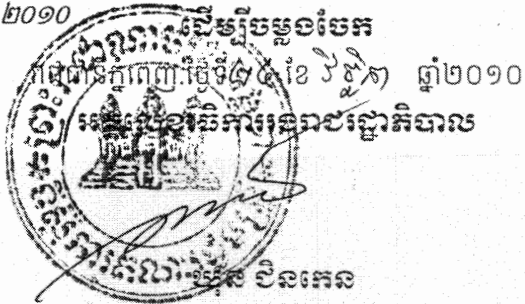 ២០១០
ដើម្បីចម្លងចែក
រាជធានីភ្នំពេញ ថ្ងៃទី២៤ ខែ វិច្ឆិកា ឆ្នាំ២០១០
អគ្គលេខាធិការរងរាជរដ្ឋាភិបាល
ឃុន ជិនកេន